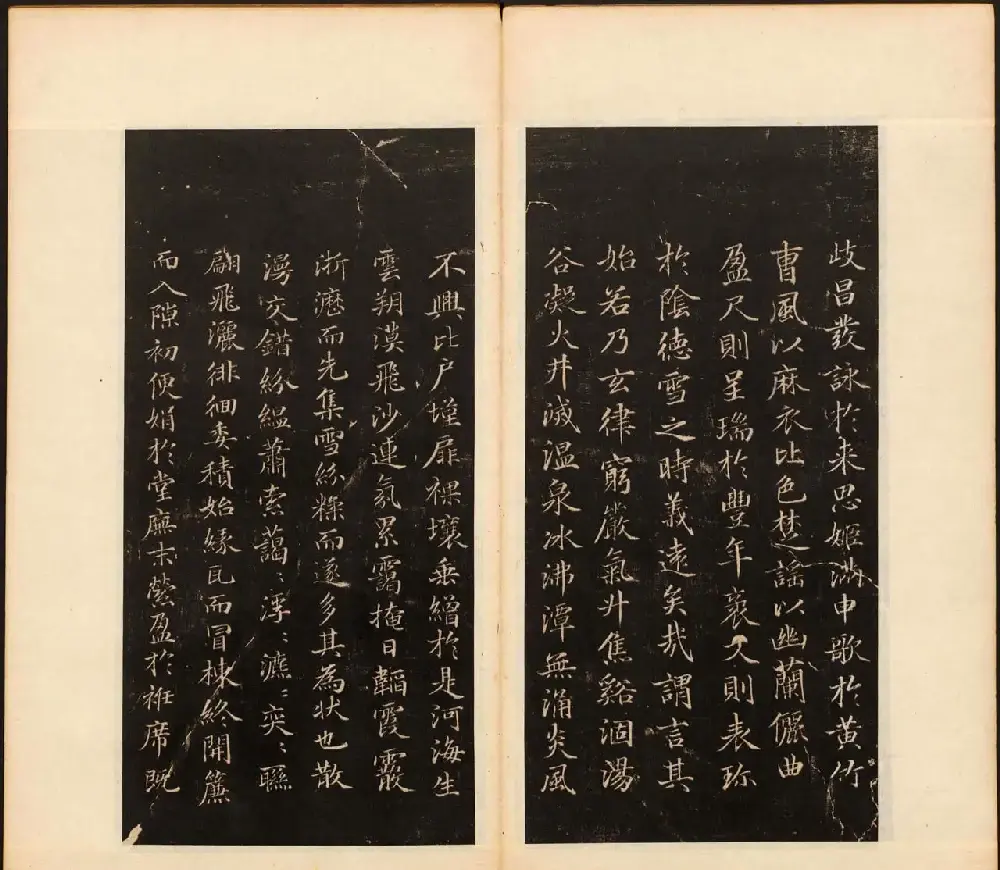 歧昌發詠於来思姬滿申歌於黄竹
曹風以麻衣比色楚謡以幽蘭儷曲
盈尺則呈瑞於豐年袤丈則表珎
於陰徳雪之時義遠矣哉謂言其
始若乃玄律窮嚴氣升焦谿涸湯
谷凝火井滅温泉冰沸潭無涌炎風
不興比户墐扉裸壤垂繒於是河海生
雲朔漠飛沙連氛累靄掩日韜霞霰
淅瀝而先集雪絲糅而遂多其為状也散
漫交錯紛緼蕭索藹〻浮〻瀌〻奕〻聯
翩飛灑徘徊委積始緣瓦而冒棟終開簾
而入隙初便娟於堂廡末縈盈於袵席既